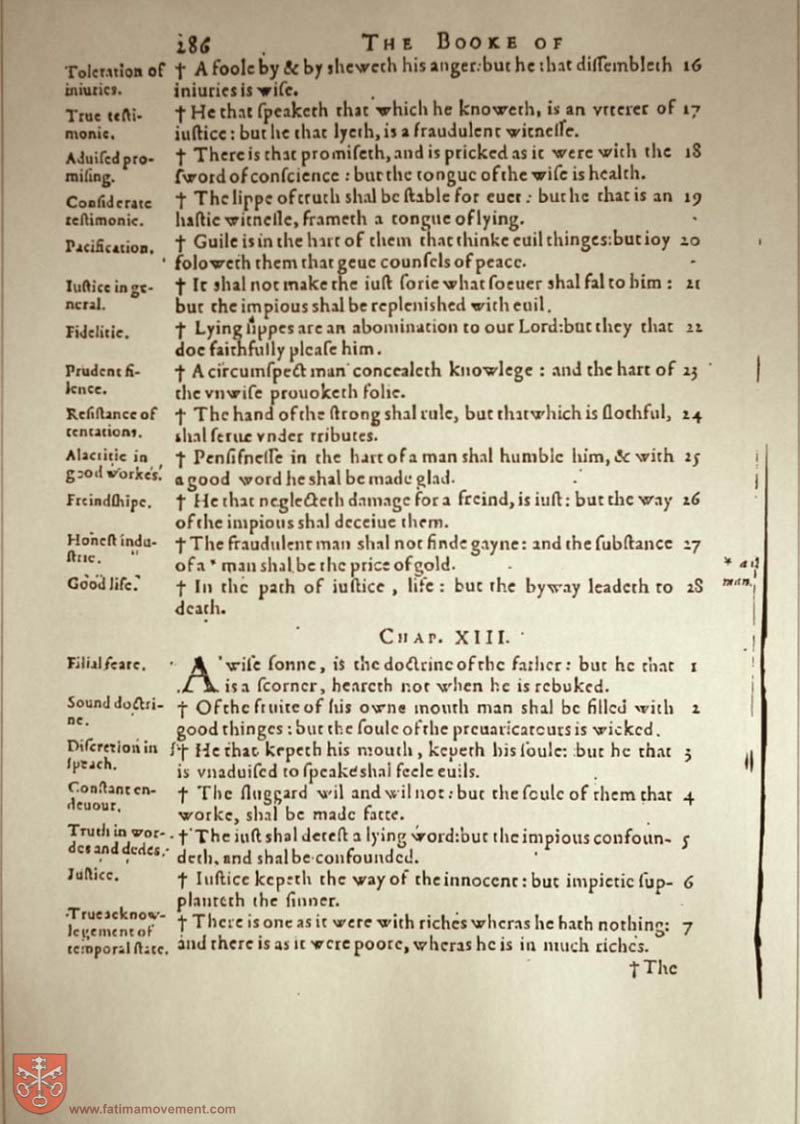 286 THE BOOKE OF
Toleration of † A foole by & by ſheweth his anger: but he that diſſembleth 16
iniuries. iniuries is wiſe.
True teſti- † He that ſpeaketh that which he knoweth, is an vtterer of 17
monie. iuſtice: but he that lyeth, is a fraudulent witneſſe.
Aduiſed pro- † There is that promiſeth, and is pricked as it were with the 18
miſing. ſword of conſcience: but the tongue of the wiſe is health.
Conſiderate † The lippe of truth shal be ſtable for euer: but he that is an 19
teſtimonie. haſtie witneſſe, frameth a tongue of lying.
Pacification. † Guile is in the hart of them that thinke euil thinges: but ioy 20
foloweth them that geue counſels of peace.
Iuſtice in ge- † It shal not make the iuſt ſorie what ſoeuer shal fal to him: 21
neral. but the impious shal be replenished with euil.
Fidelitie. † Lying lippes are an abomination to our Lord: but they that 22
doe faithfully pleaſe him.
Prudent ſi- † A circumſpect man concealeth knowlege: and the hart of 23
lence. the vnwiſe prouoketh folie.
Reſiſtance of † The hand of the ſtrong shal rule, but that which is ſlothful, 24
tentations. shal ſerue vnder tributes.
Alacritie in † Penſifneſſe in the hart of a man shal humble him, & with 25
good workes. a good word he shal be made glad.
Freindſhipe. † He that neglecteth damage for a freind, is iuſt: but the way 26
of the impious shal deceiue them.
Honeſt indu- † The fraudulent man shal not finde gayne: and the ſubſtance 27
ſtrie. of a * man shal be the price of gold. * a
Good life. † In the path of iuſtice, life: but the byway leadeth to 28 man.
death.
CHAP. XIII.
Filial feare. A wiſe ſonne, is the doctrine of the father: but he that 1
is a ſcorner, heareth not when he is rebuked.
Sound doctri- † Of the fruite of his owne mouth man shal be filled with 2
ne. good thinges: but the ſoule of the preuaricateurs is wicked.
Diſcretion in † He that kepeth his mouth, kepeth his ſoule: but he that 3
ſpeach. is vnaduiſed to ſpeake shal feele euils.
Conſtant en- † The ſluggard wil and wil not: but the ſoule of them that 4
deuour. worke, shal be made fatte.
Truth in wor- † The iuſt shal deteſt a lying word: but the impious confoun- 5
des and dedes. deth, and shal be confounded.
Juſtice. † Iuſtice kepeth the way of the innocent: but impietie ſup- 6
planteth the ſinner.
True acknow- † There is one as it were with riches wheras he hath nothing: 7
legement of and there is as it were poore, wheras he is in much riches.
temporal ſtate. † The
www.fatimamovement.com